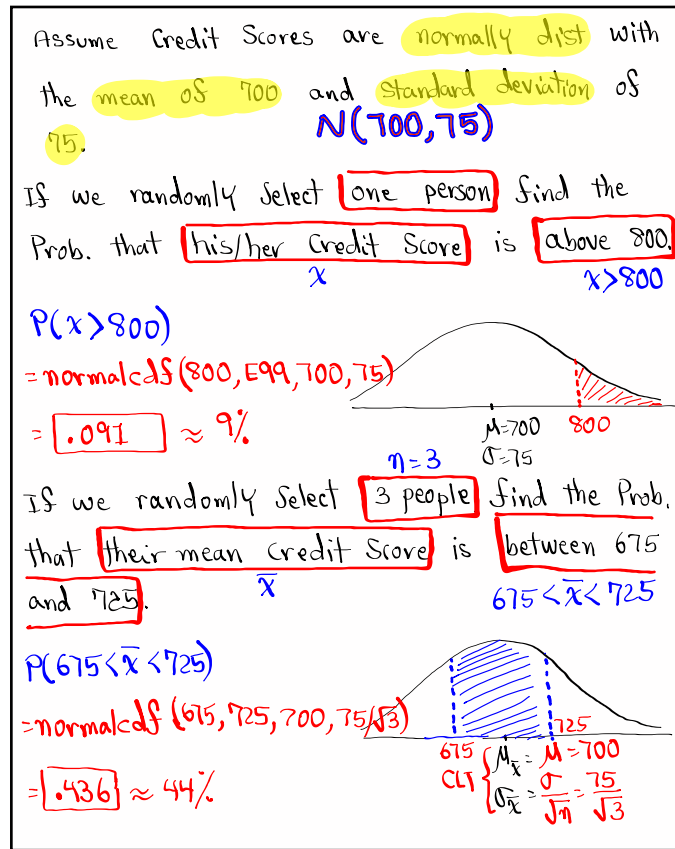 Assume Credit Scores are normally dist with
the mean of 700 and standard deviation of
75. N(700,75)
If we randomly Select one person find the
Prob. that his/her Credit Score is above 800.
x x>800
P(x>800)
=normalcdf(800,E99,700,75)
= .091 ≈ 9%
μ=700 800
σ=75
n=3
If we randomly Select 3 people find the Prob.
that their mean Credit Score is between 675
and 725. x̄ 675<x̄<725
P(675<x̄<725)
=normalcdf(675,725,700,75/√3)
= .436 ≈ 44%
675 725
CLT { μx̄ = μ = 700
σx̄ = σ/√n = 75/√3